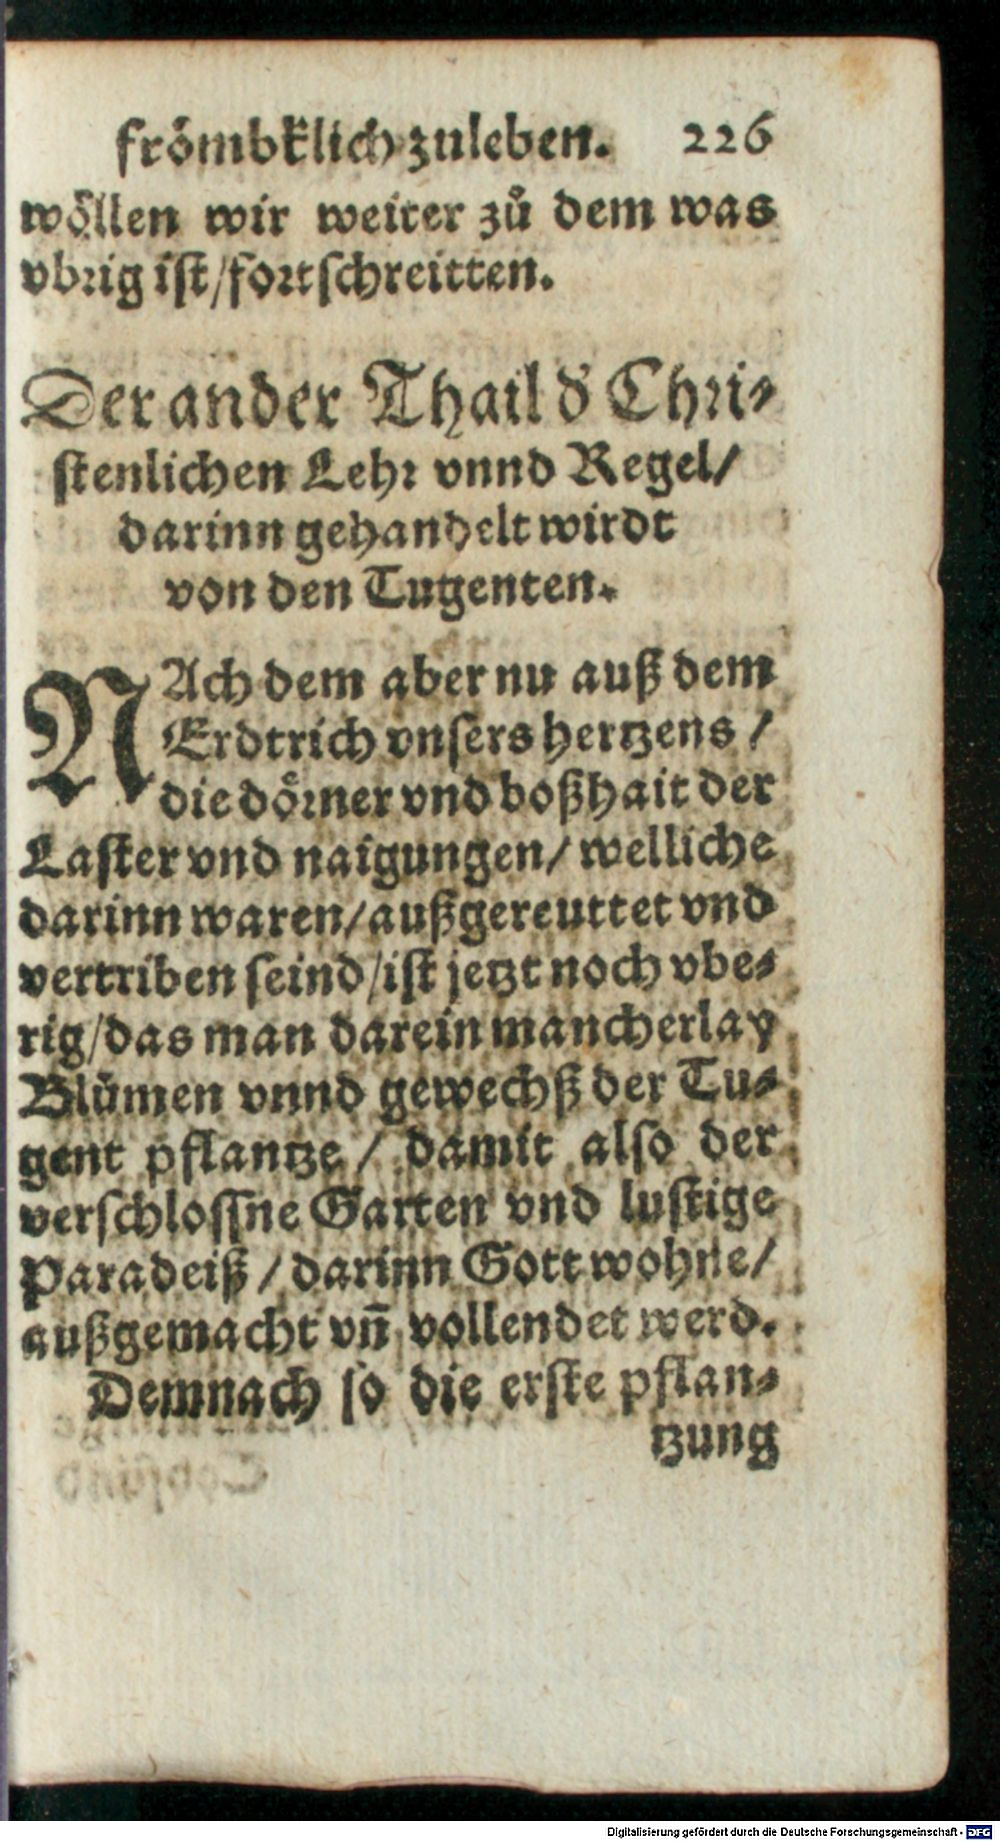 froͤmbklich zuleben. 226
woͤllen wir weiter zuͦ dem was
vbrig ist/fortschreitten.
Der ander Thail d̕ Chri⸗
stenlichen Lehr vnnd Regel/
darinn gehandelt wirdt
von den Tugenten.
NAch dem aber nu auß dem
Erdtrich vnsers hertzens /
die doͤrner vnd boßhait der
Laster vnd naigungen/ welliche
darinn waren/außgereuttet vnd
vertriben seind/ist jetzt noch vbe⸗
rig/das man darein mancherlay
Bluͤmen vnnd gewechß der Tu⸗
gent pflantze / damit also der
verschlossne Garten vnd lustige
Paradeiß / darinn Gott wohne/
außgemacht vn̄ vollendet werd.
Demnach so die erste pflan⸗
tzung
Digitalisierung gefördert durch die Deutsche Forschungsgemeinschaft - DFG